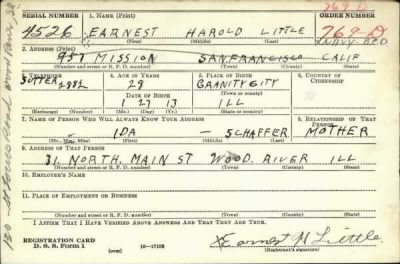 SERIAL NUMBER 1. NAME (Print) ORDER NUMBER
769-D
4526 EARNEST HAROLD LITTLE 769-D
(First) (Middle) (Last)
2. ADDRESS (Print)
957 MISSION SAN. FRANCISCO CALIF
(Number and street or R. F. D. number) (Town) (County) (State)
3. TELEPHONE 4. AGE IN YEARS 5. PLACE OF BIRTH 6. COUNTRY OF CITIZENSHIP
SUTTER 9882 29 GRANITE CITY
DATE OF BIRTH (Town or county)
1 27 13 ILL
(Exchange) (Number) (Mo.) (Day) (Yr.) (State or country)
7. NAME OF PERSON WHO WILL ALWAYS KNOW YOUR ADDRESS 8. RELATIONSHIP OF THAT PERSON
IDA — SCHAFFER MOTHER
(Mr., Mrs., Miss) (First) (Middle) (Last)
9. ADDRESS OF THAT PERSON
31. NORTH. MAIN ST WOOD. RIVER ILL
(Number and street or R. F. D. number) (Town) (County) (State)
10. EMPLOYER'S NAME
11. PLACE OF EMPLOYMENT OR BUSINESS
(Number and street or R. F. D. number) (Town) (County) (State)
I AFFIRM THAT I HAVE VERIFIED ABOVE ANSWERS AND THAT THEY ARE TRUE.
REGISTRATION CARD
D. S. S. Form 1 (over) 16—17105
Earnest H Little